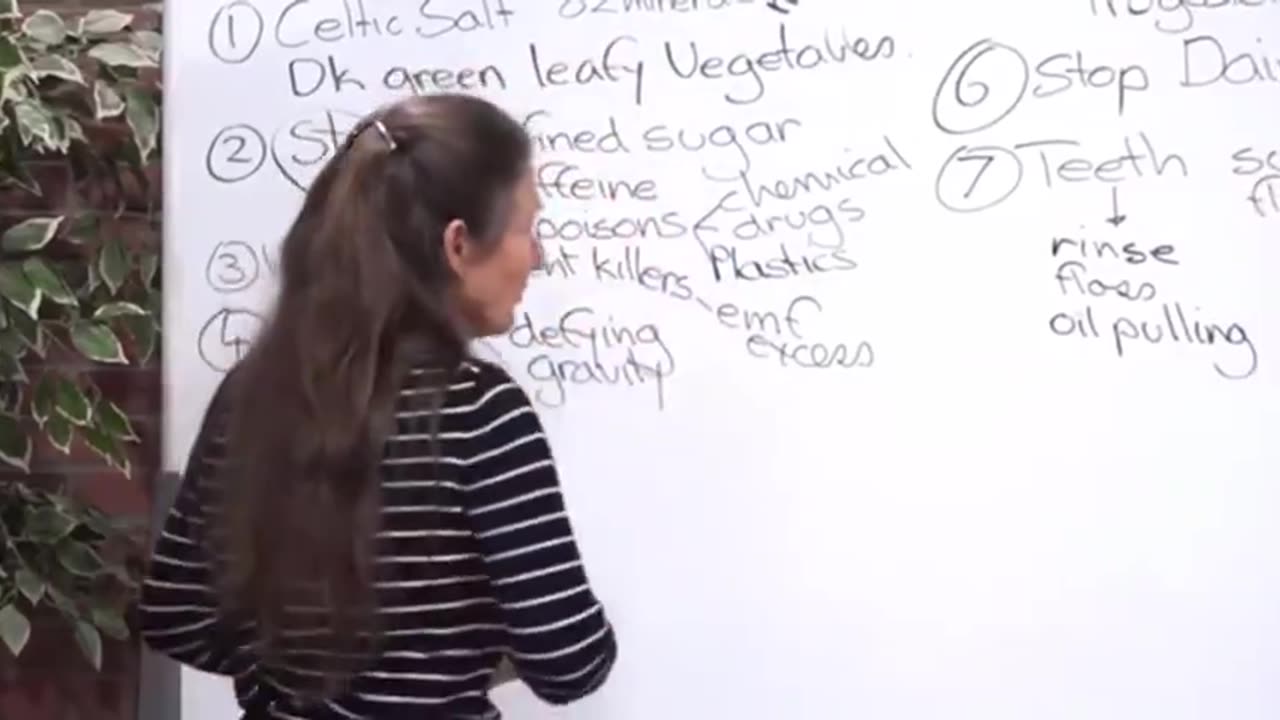 ① Celtic Salt 82 minerals
Dk green leafy Vegetables.
② fined sugar
ffeine
poisons chemical
drugs
③ nt killers Plastics
emf
excess
④ defying
gravity
⑥ Stop Dai
⑦ Teeth
rinse
floss
oil pulling